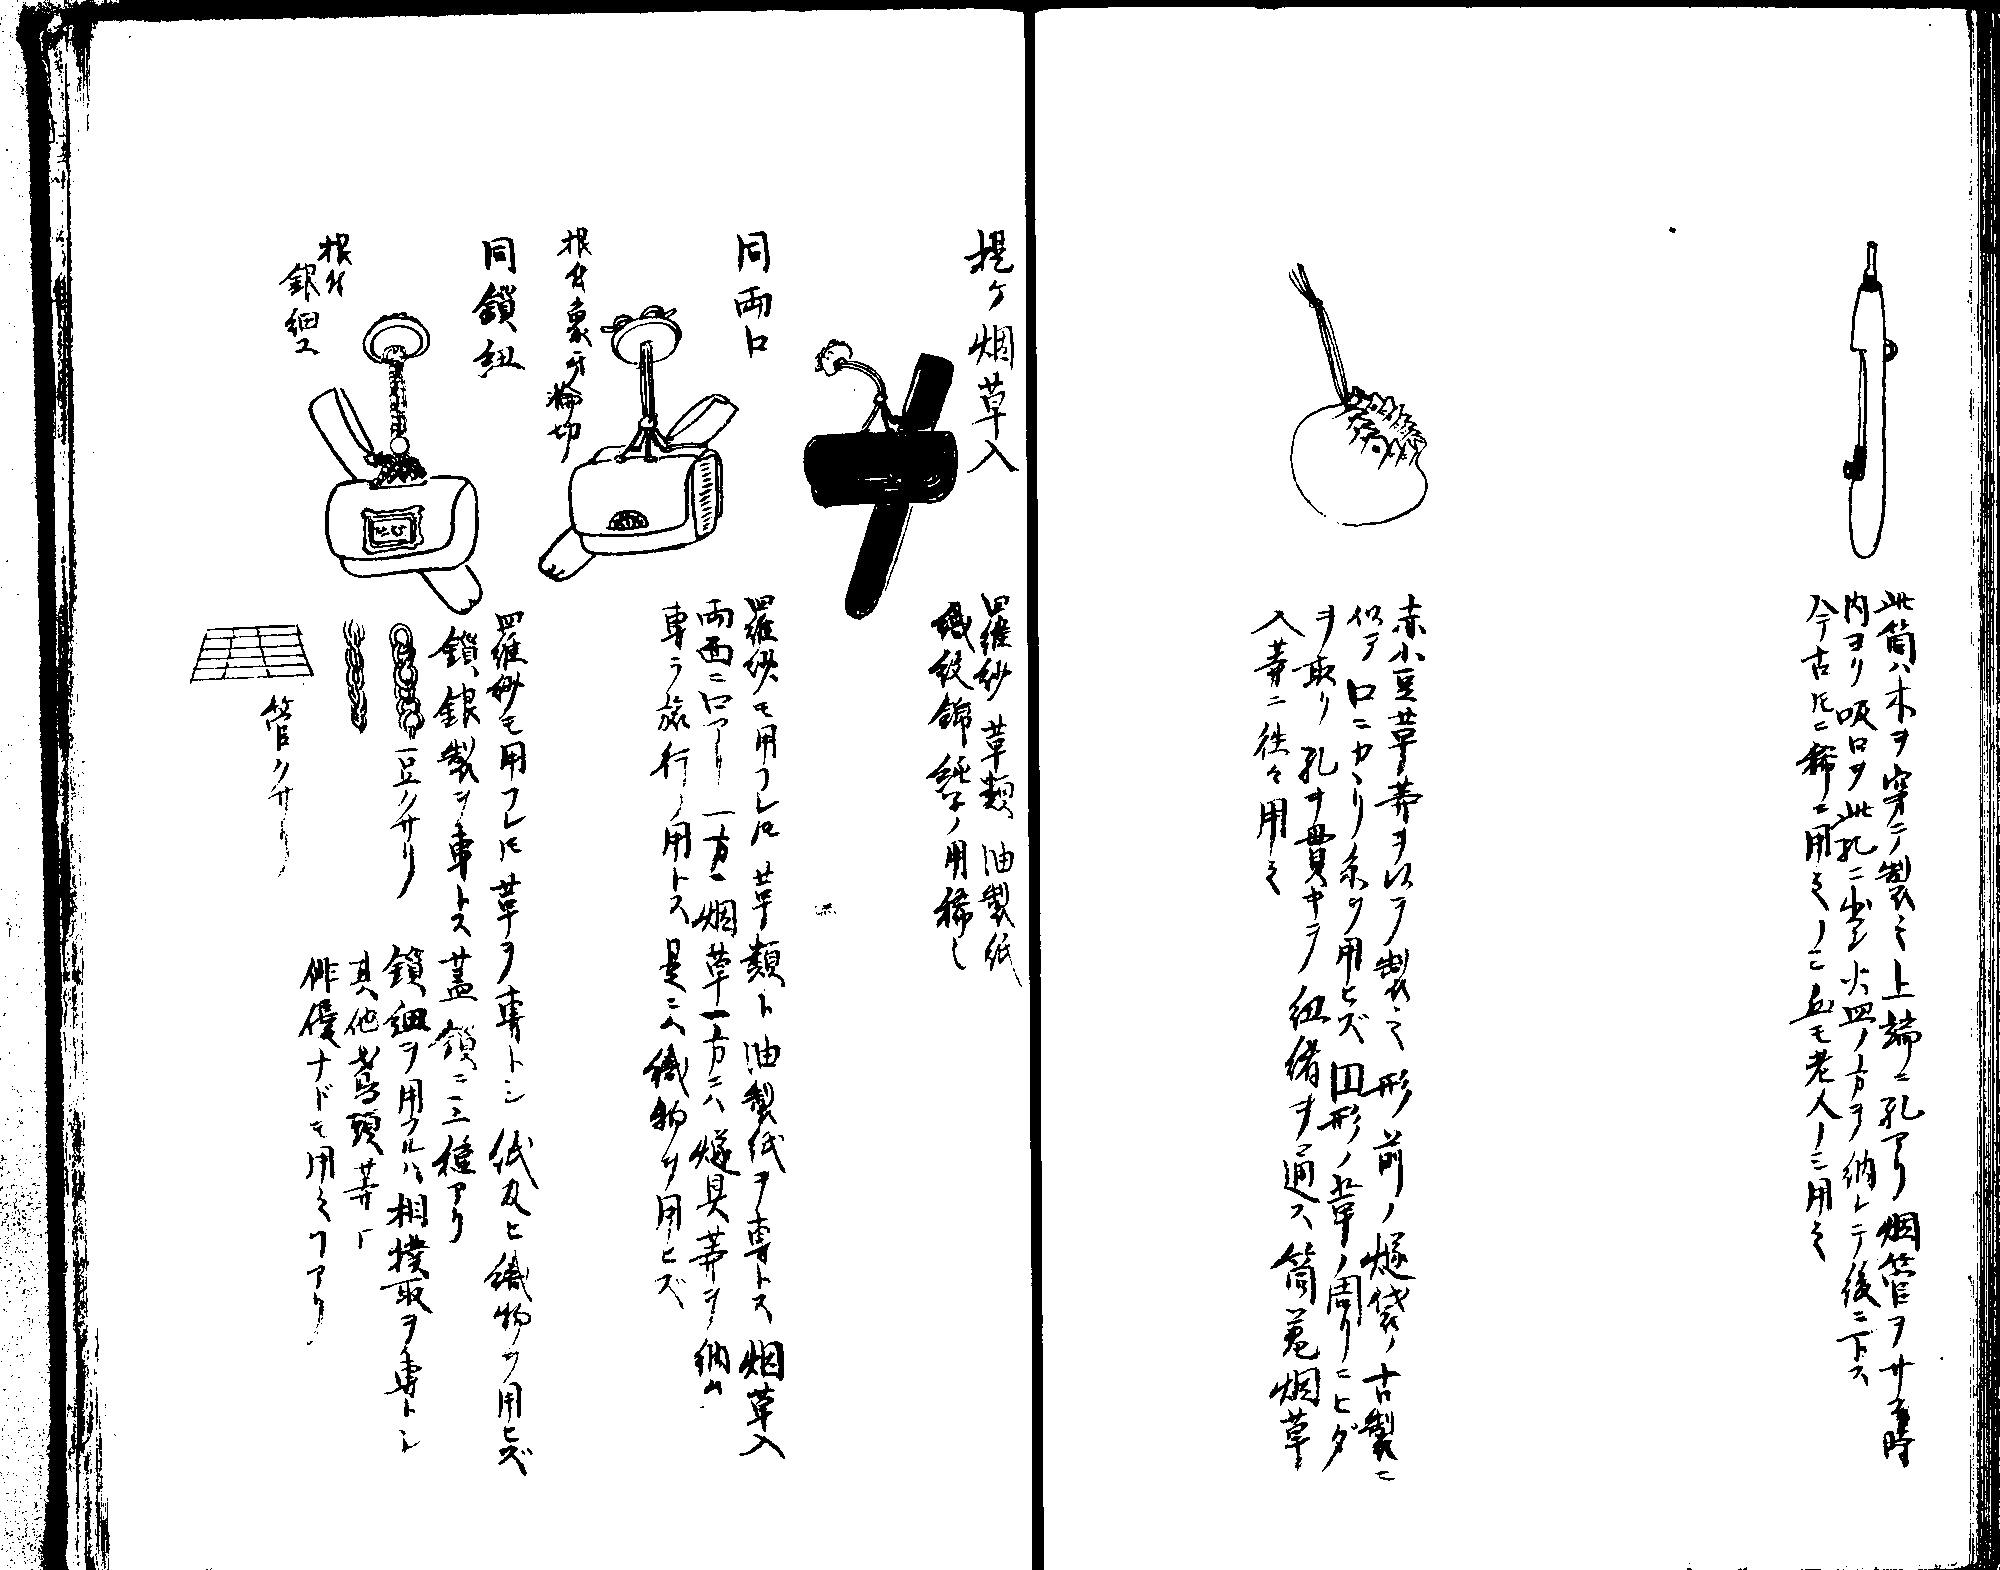 此筒ハ木ヲ穿テ製ス上端ニ孔アリ烟管ヲサス時
内ヨリ吸口ヲ此孔ニ出シ火皿ノ方ヲ納レテ後ニ下ス
今古ニ稀ニ用ミノニ 老人ノミ用ミ
赤小豆革等ヲ以テ製ミ形前ノ燧袋ノ古製ニ
似テ口ニカヽリ糸ヲ用ヒズ 円形ノ革ノ周リニヒダ
ヲ取リ孔ヲ貫キテ紐緒ヲ通ス筒 烟草
入等ニ往々用ミ
提ケ烟草入
羅紗 革類 油製紙
織紋錦純子ノ用稀シ
同両口
根付裏牙輪切
羅紗モ用フレ𪜈革類ト油製紙ヲ専トス烟草入
両面ニ口アリ一方ニ烟草一方ニハ燧具等ヲ納ム
専ラ旅行ノ用トス是ニハ織物ヲ用ヒズ
同鎖紐
根付
銀細工
羅紗モ用フレ𪜈革ヲ専トシ紙及ヒ織物ヲ用ヒズ
鎖銀製ヲ専トス蓋鎖ニ三種アリ
豆クサリ
鎖紐ヲ用フルハ相撲取ヲ専トシ
其他鳶頭等
俳優ナドモ用ミヿアリ
管クサリ